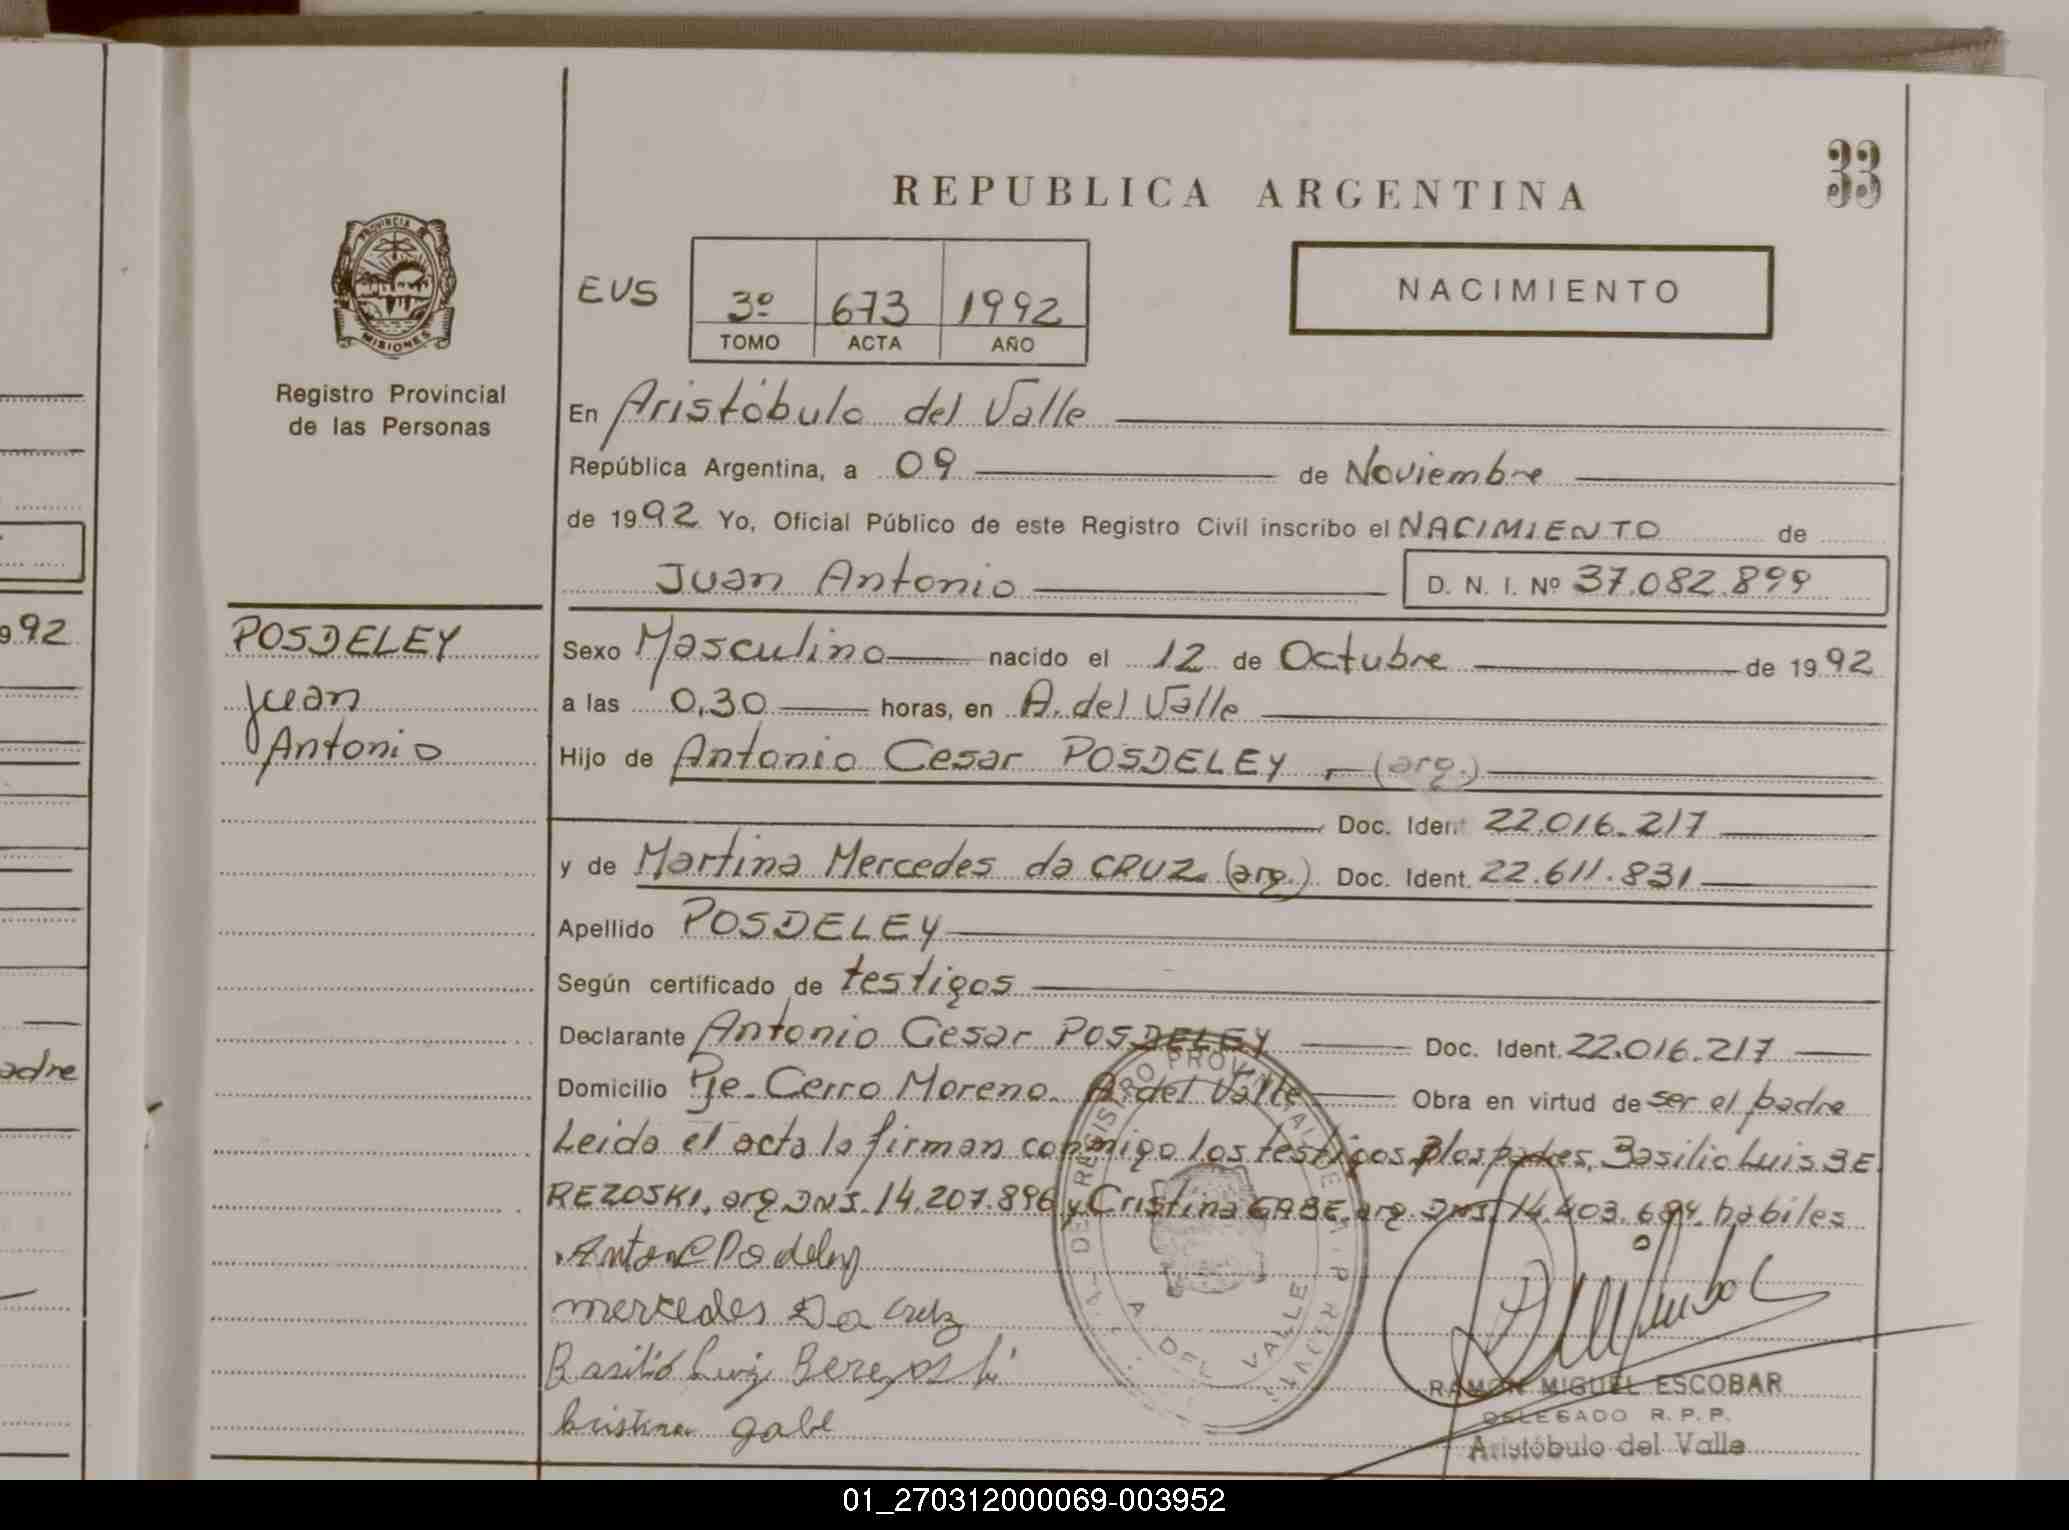 REPUBLICA ARGENTINA
33
PROVINCIA DE
MISIONES
Registro Provincial
de las Personas
EVS
3º 673 1992
TOMO ACTA AÑO
NACIMIENTO
En Aristóbulo del Valle
República Argentina, a 09 de Noviembre
de 1992 Yo, Oficial Público de este Registro Civil inscribo el NACIMIENTO de
Juan Antonio D. N. I. Nº 37.082.899
992
POSDELEY
Juan
Antonio
Sexo Masculino nacido el 12 de Octubre de 1992
a las 0,30 horas, en A. del Valle
Hijo de Antonio Cesar POSDELEY (arg.)
Doc. Ident 22.016.217
y de Martina Mercedes da CRUZ (arg.) Doc. Ident. 22.611.831
Apellido POSDELEY
Según certificado de testigos
Declarante Antonio Cesar POSDELEY Doc. Ident. 22.016.217
adre
Domicilio Pje. Cerro Moreno. A. del Valle Obra en virtud de ser el padre
Leida el acta la firman conmigo los testigos, Basilio Luis BE
REZOSKI, arg. DNI. 14.207.896 y Cristina GABE, arg. DNI. 14.403.694. habiles
mercedes Da Cruz
Basilio Luiz Berezoski
Cristina gabe
REGISTRO PROVINCIAL DE
A DEL VALLE
RAMON MIGUEL ESCOBAR
DELEGADO R. P. P.
Aristóbulo del Valle
01_270312000069-003952